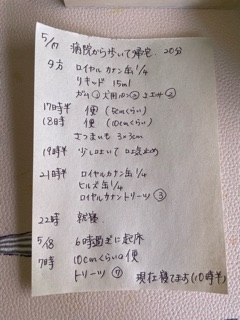 5/17 病院から歩いて帰宅 20分
夕方 ロイヤルカナン缶1/4
リキッド 15ml
ガム① 犬用 ②
17時半 便 (5cmくらい)
18時 便 (10cmくらい)
さつまいも 3×3cm
19時半 少し吐いて 吐気止め
21時半 ロイヤルカナン缶1/4
ヒルズ缶1/4
ロイヤルカナントリーツ③
22時 就寝
5/18 6時過ぎに起床
7時 10cmくらいの便
トリーツ⑦
現在寝てます(10時半)